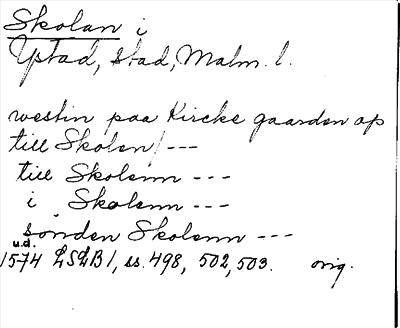 Skolan i
Ystad, stad, Malm. l.
westin paa Kircke gaarden op
till Skolen/ ---
till Skolenn ---
i Skolenn ---
sönden Skolenn ---
u.d.
1574 LSLB1, ss. 498, 502, 503. orig.